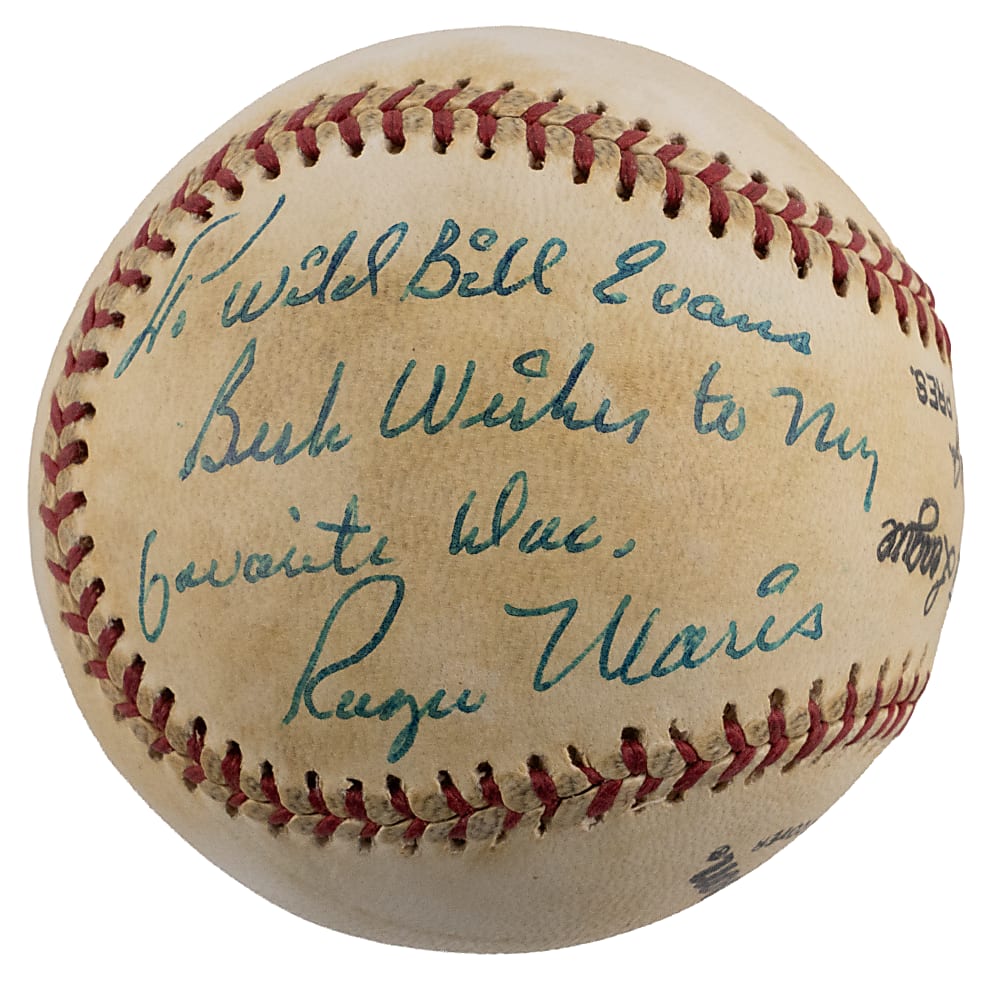 To Wild Bill Evans
Best Wishes to My
favorite Doc.
Roger Maris
PRES.
League